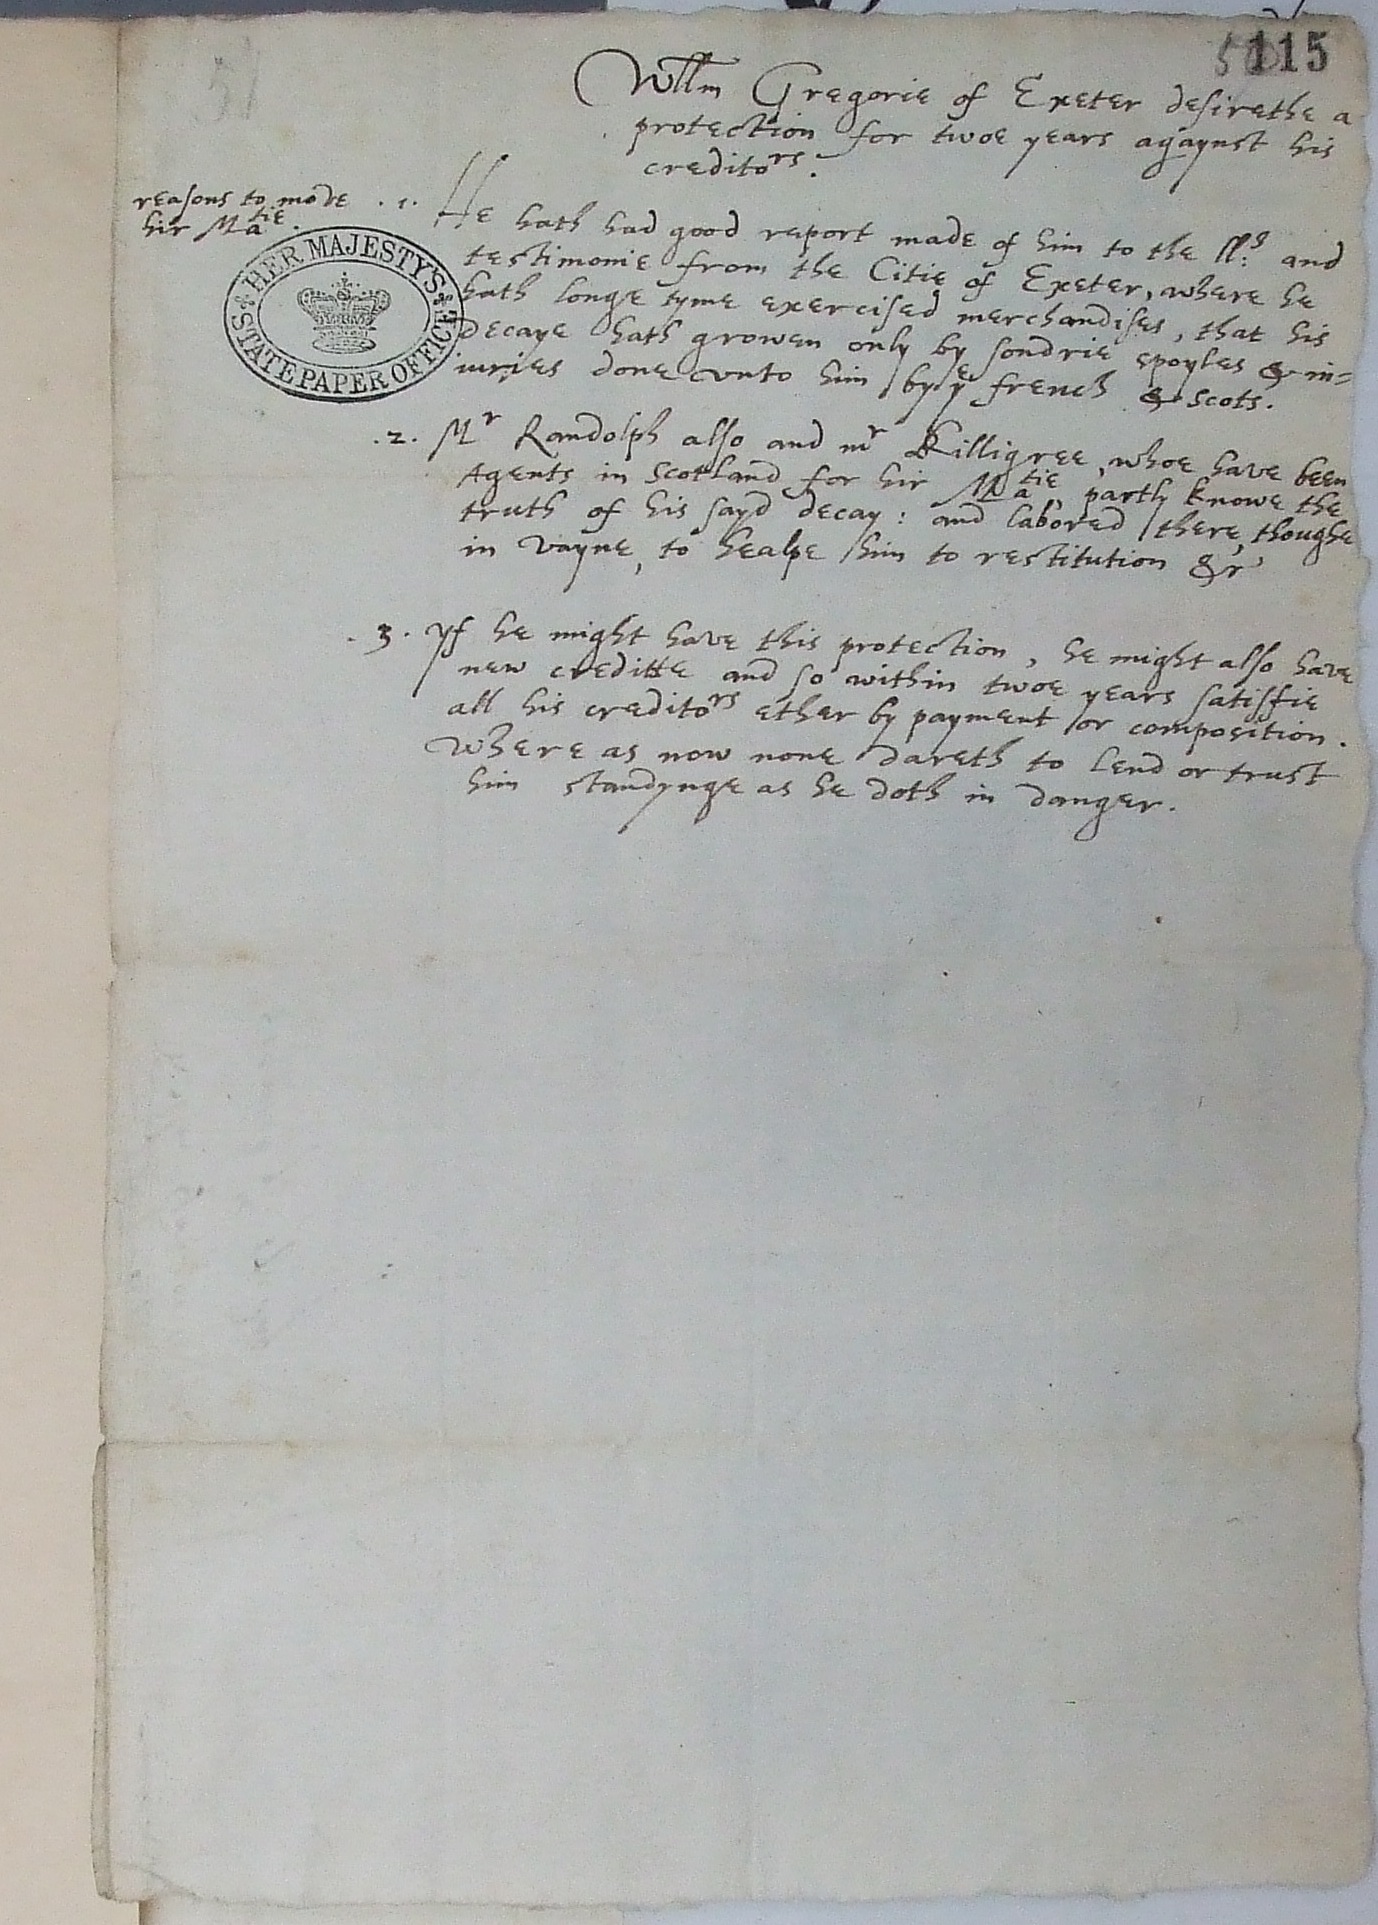 115
Wllm Gregorie of Exeter desirethe a
protection for twoe years agaynst his
creditors.
reasons to move
hir Matie.
.1. He hath had good report made of him to the lls: and
testimonie from the Citie of Exeter, where he
hath longe tyme exercised merchandises, that his
decaye hath growen only by sondrie spoyles & in=
iuries done vnto him by ye french & Scots.
.2. Mr Randolph also and mr Killigree, whoe have been
Agents in Scotland for hir Matie, partly knowe the
truth of his sayd decay: and labored there, thoughe
in vayne, to healpe him to restitution &c
.3. Yf he might have this protection, he might also have
new creditte and so within twoe years satisfie
all his creditors ether by payment or composition.
Where as now none dareth to lend or trust
him standynge as he doth in danger.
HER MAJESTY'S
STATE PAPER OFFICE